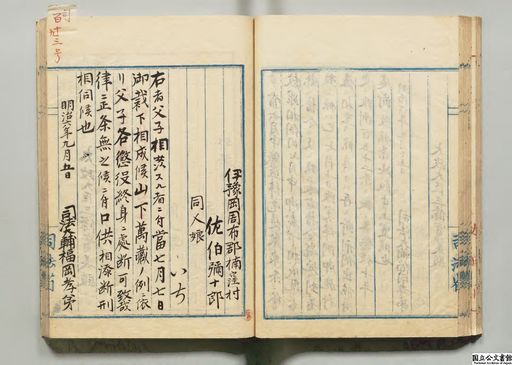 百廿三号
伊豫国周布郡楠窪村
佐伯彌十郎
同人娘
いち
右者父子相姦スル者ニ付當七月七日
御裁下相成候山下萬藏ノ例ニ依
リ父子各懲役終身ニ処断可致哉
律ニ正条無之候ニ付口供相添断刑
相伺候也
明治六年九月五日
司法大輔福岡孝弟
国立公文書館
National Archives of Japan